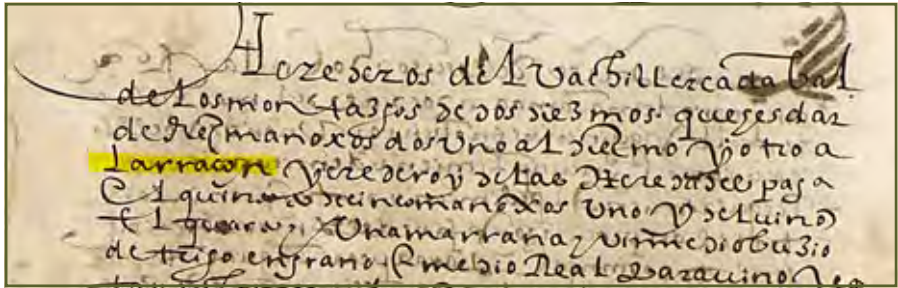 Herederos del Vachiller cada bal
de los montazgos de dos diezmos que es dar
de diez manoxos dos uno al diezmo y otro a
Larracon y eredero y de las eredades paga
El quinto de cinco manoxos uno y del vino
El quarto, Una marrana, y un medio bu3io
de trigo en grano E medio Real para vino